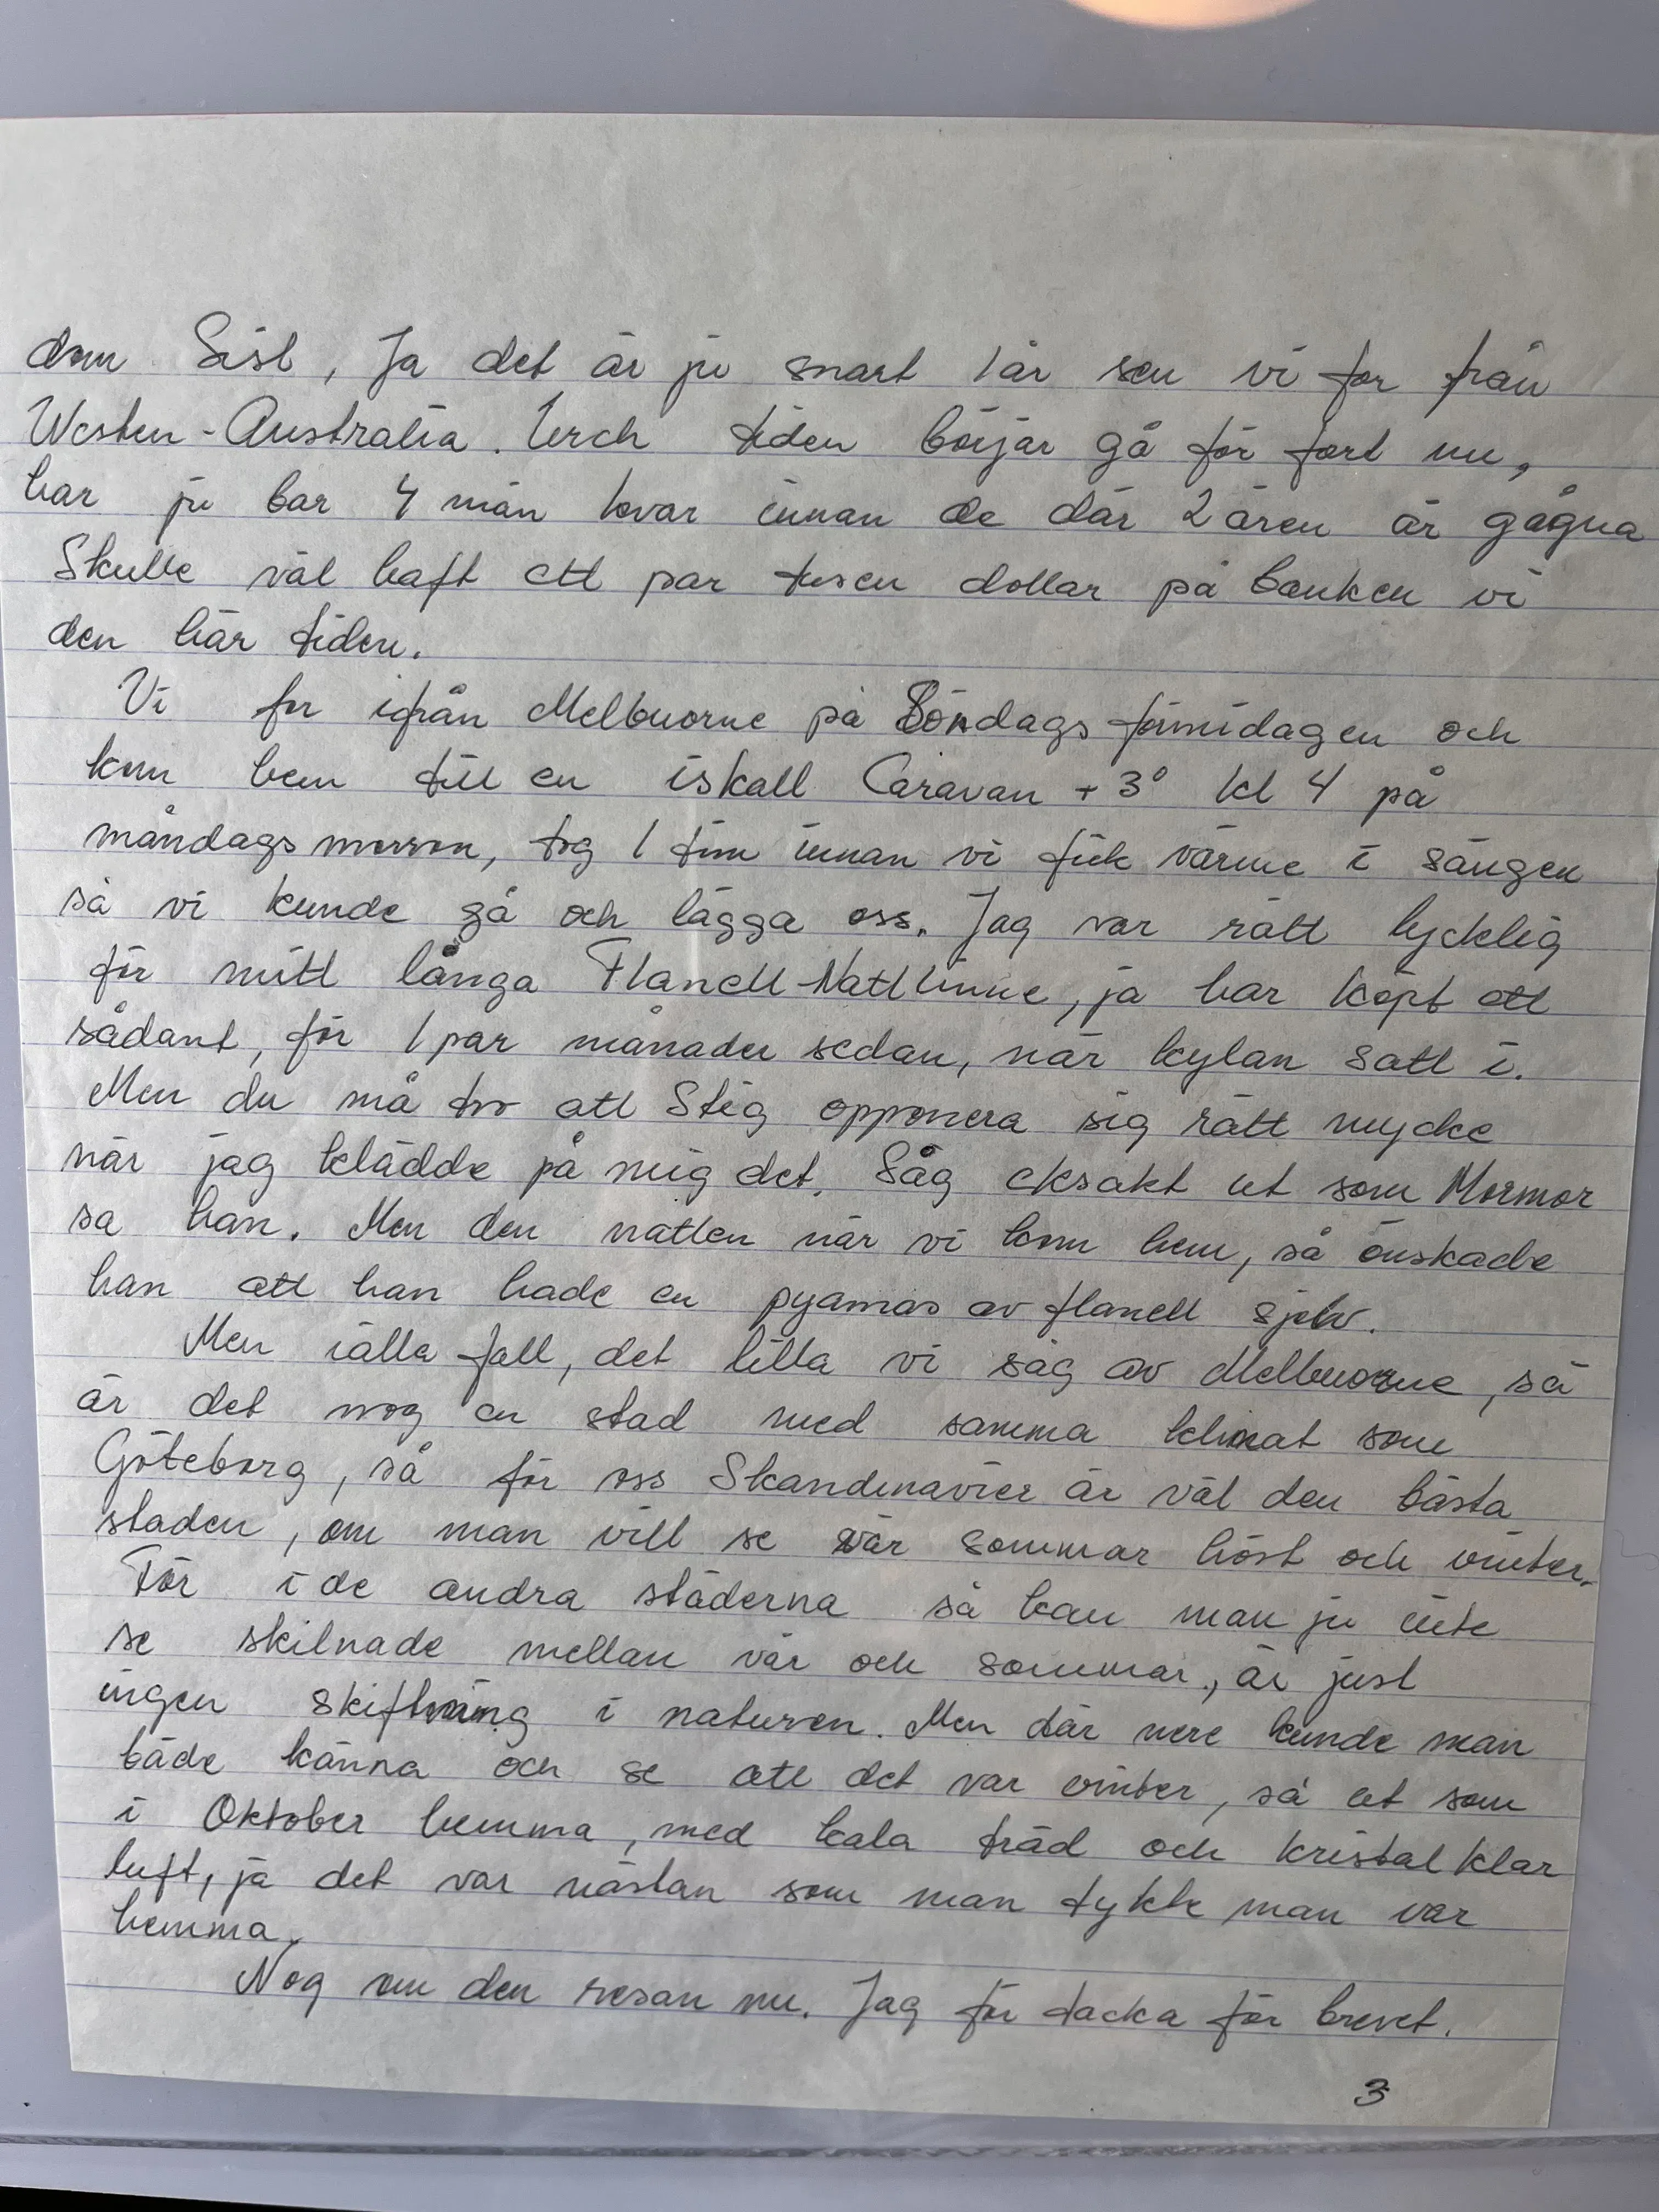 dom Sist, Ja det är ju snart 1 år sen vi for från
Westen-Australia. Usch tiden börjar gå för fort nu,
har ju bar 4 mån kvar innan de där 2 åren är gågna
Skulle väl haft ett par tusen dollar på banken vi
den här tiden.
Vi for ifrån Melbuorne på Söndags förmidagen och
kom hem till en iskall Caravan + 3° kl 4 på
måndags morron, tog 1 tim innan vi fick värme i sängen
så vi kunde gå och lägga oss. Jag var rätt lycklig
för mitt långa Flanell-Nattlinne, ja har köpt ett
sådant, för 1 par månader sedan, när kylan satt i.
Men du må tro att Stig opponera sig rätt mycke
när jag klädde på mig det. Såg eksakt ut som Mormor
sa han. Men den natten när vi kom hem, så önskade
han att han hade en pyamas av flanell sjelv.
Men iälla fall, det lilla vi såg av Melbuorne, så
är det nog en stad med samma klimat som
Göteborg, så för oss Skandinavier är väl den bästa
staden, om man vill se vår sommar höst och vinter.
För i de andra städerna så kan man ju inte
se skilnade mellan vår och sommar, är just
ingen skiftning i naturen. Men där nere kunde man
både känna och se att det var vinter, så ut som
i Oktober hemma, med kala träd och kristal klar
luft, ja det var nästan som man tykte man var
hemma.
Nog om den resan nu. Jag får tacka för brevet.
3